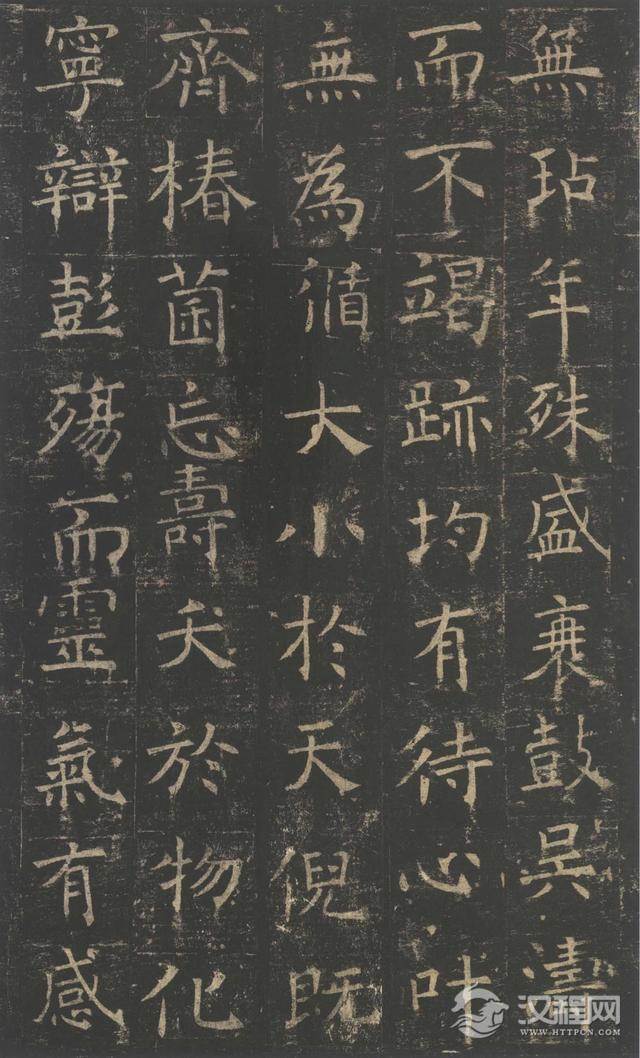 無玷年殊盛衰鼓吳
而不竭跡均有待心叶
無為循大小於天倪既
齊椿菌忘壽夭於物化
寧辯彭殤而靈氣有感
汉程网
WWW.HTTPCN.COM